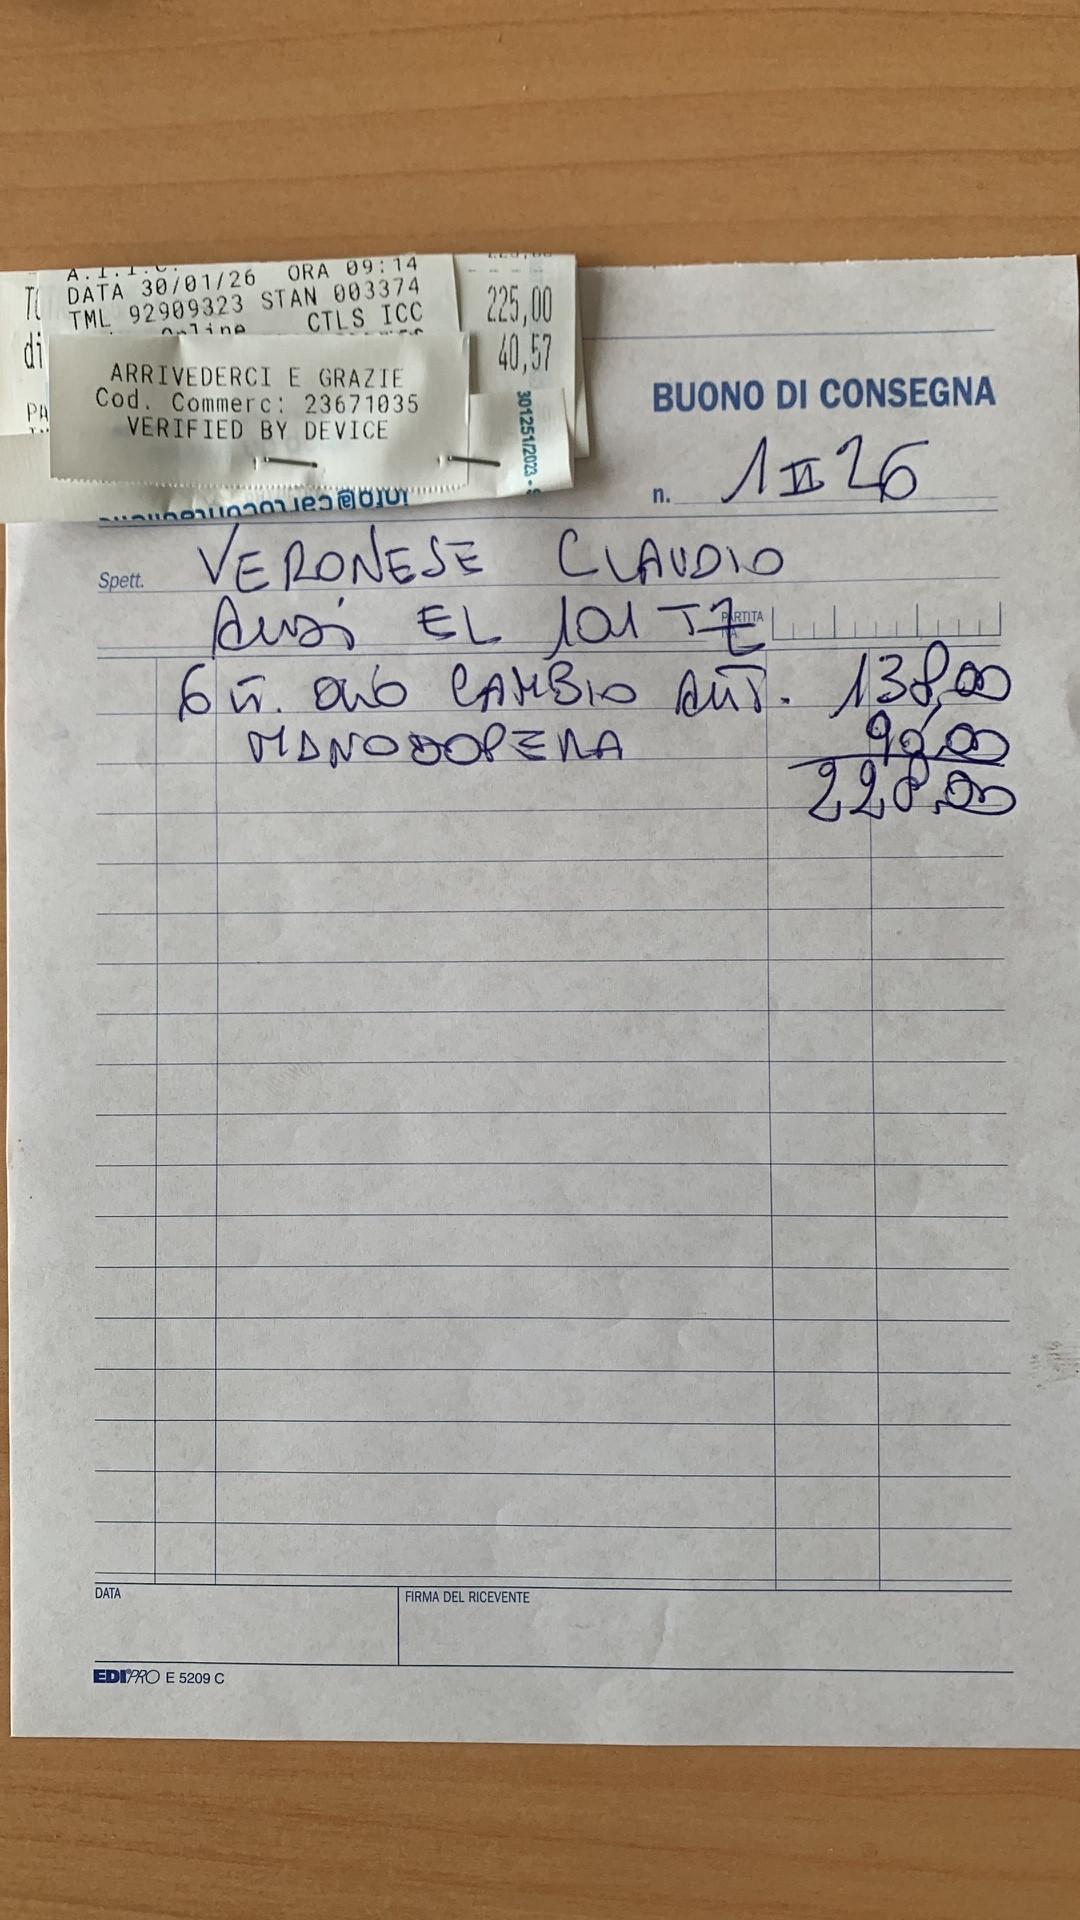 A.I.I.C.
DATA 30/01/26 ORA 09:14
TML 92909323 STAN 003374
Online CTLS ICC
225,00
40,57
di
ARRIVEDERCI E GRAZIE
Cod. Commerc: 23671035
VERIFIED BY DEVICE
301251/2023
BUONO DI CONSEGNA
n. 1 II 26
Spett. VERONESE CLAUDIO
AUDI EL 101 TZ
PARTITA
6 LT. OLIO CAMBIO AUT. 138,00
MANODOPERA 90,00
228,00
DATA
FIRMA DEL RICEVENTE
EDIPRO E 5209 C